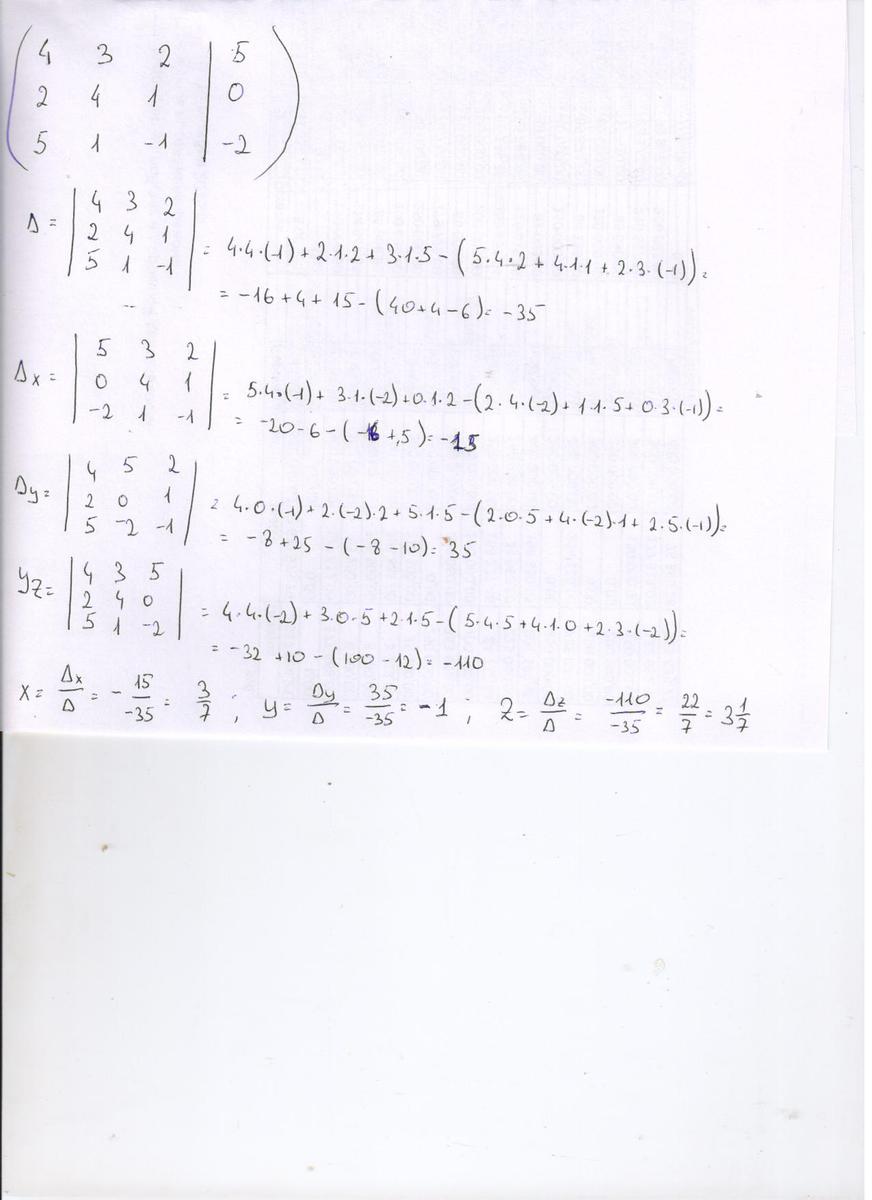 4 3 2 | 5
2 4 1 | 0
5 1 -1 | -2
Δ = | 4 3 2 |
| 2 4 1 | = 4·4·(-1) + 2·1·2 + 3·1·5 - (5·4·2 + 4·1·1 + 2·3·(-1)) =
| 5 1 -1 |
= -16 + 4 + 15 - (40 + 4 - 6) = -35
Δx = | 5 3 2 |
| 0 4 1 | = 5·4·(-1) + 3·1·(-2) + 0·1·2 - (2·4·(-2) + 1·1·5 + 0·3·(-1)) =
| -2 1 -1 |
= -20 - 6 - (-16 + 5) = -15
Δy = | 4 5 2 |
| 2 0 1 | = 4·0·(-1) + 2·(-2)·2 + 5·1·5 - (2·0·5 + 4·(-2)·1 + 2·5·(-1)) =
| 5 -2 -1 |
= -8 + 25 - (-8 - 10) = 35
yz = | 4 3 5 |
| 2 4 0 | = 4·4·(-2) + 3·0·5 + 2·1·5 - (5·4·5 + 4·1·0 + 2·3·(-2)) =
| 5 1 -2 |
= -32 + 10 - (100 - 12) = -110
x = Δx/Δ = - 15/-35 = 3/7 ; y = Δy/Δ = 35/-35 = -1 ; z = Δz/Δ = -110/-35 = 22/7 = 3 1/7